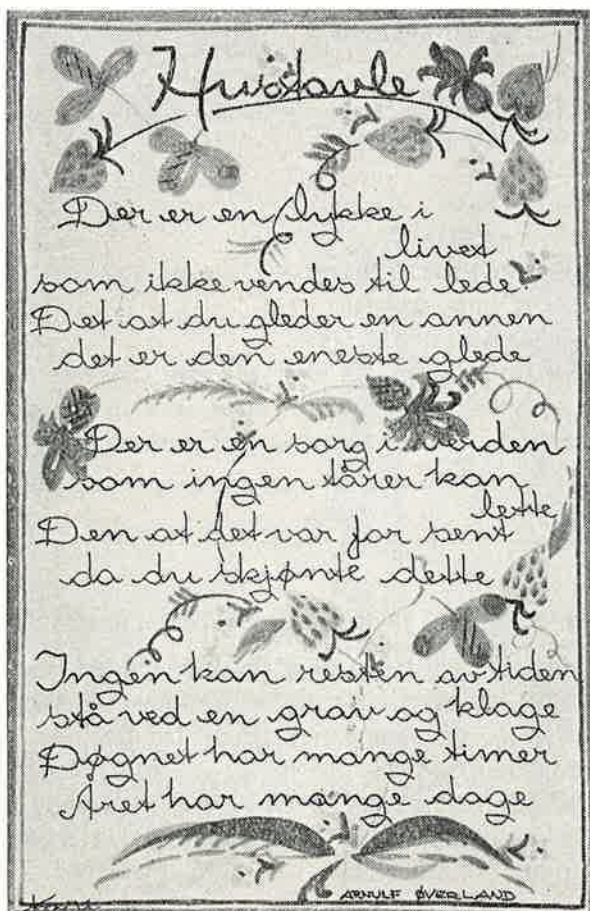 Hustavle
Der er en lykke i
livet
som ikke vendes til lede
Det at du gleder en annen
det er den eneste glede
Der er en sorg i verden
som ingen tårer kan
lette
Den at det var for sent
da du skjønte dette
Ingen kan resten av tiden
stå ved en grav og klage
Døgnet har mange timer
Året har mange dage
ARNULF ØVERLAND